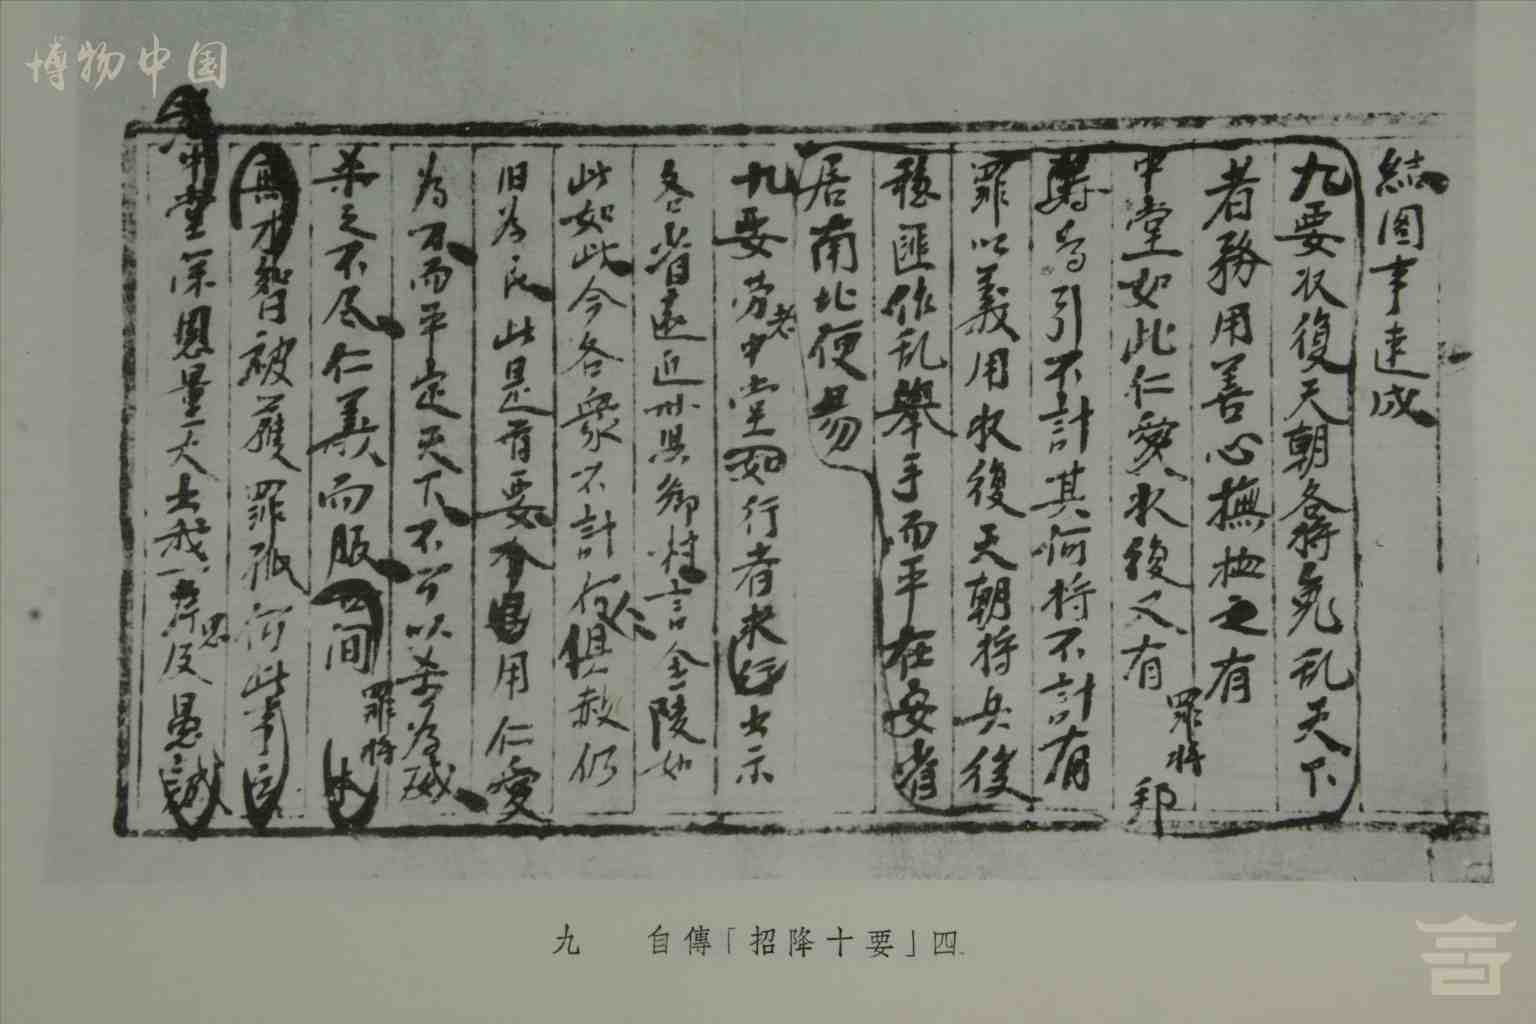 博物中国
結囯事速成
九要収復天朝各将免乱天下
者務用善心撫恤之有
中堂如此仁愛収復又有罪将
邦
爵為引不計其何将不計有
罪以義用収復天朝将兵後
穏匪作乱舉手而平在安省
居南北便易
九要劳老中堂如行者求行出示
各省遠近州県鄉村言金陵如
此如此今各衆不計何人俱赦仍
旧為民此是首要用仁愛
為刀而平定天下不可以殺為威
杀之不尽仁義而服世间罪将
本
無才智日被獲罪孤何此事
中堂深恩量大出我一片思及愚誠
九 自傳「招降十要」四